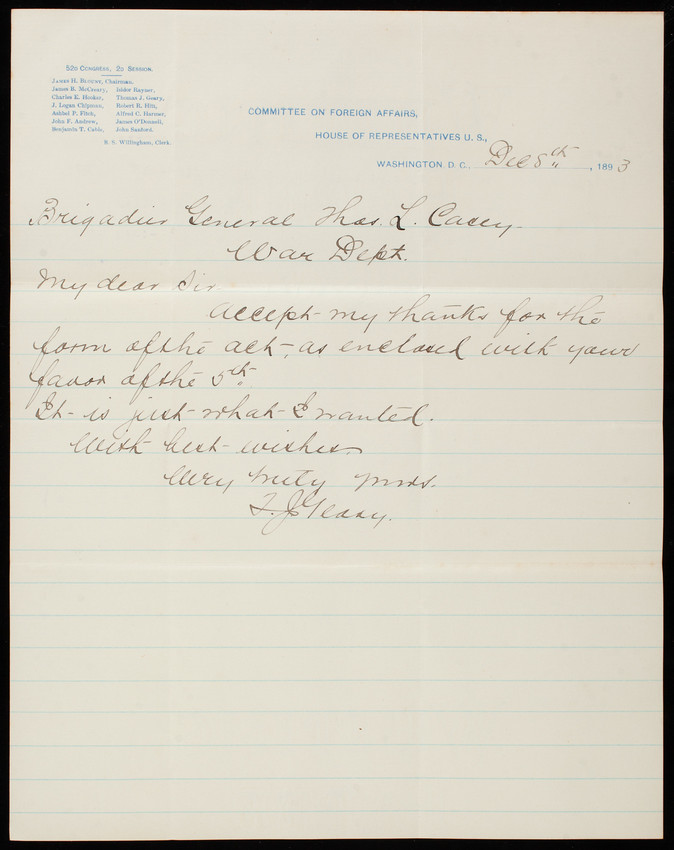 52D CONGRESS, 2D SESSION.
JAMES H. BLOUNT, Chairman.
James B. McCreary, Isidor Rayner,
Charles E. Hooker, Thomas J. Geary,
J. Logan Chipman, Robert R. Hitt,
Ashbel P. Fitch, Alfred C. Harmer,
John F. Andrew, James O'Donnell,
Benjamin T. Cable, John Sanford.
R. S. Willingham, Clerk.
COMMITTEE ON FOREIGN AFFAIRS,
HOUSE OF REPRESENTATIVES U. S.,
WASHINGTON, D. C., Dec 8th, 1893
Brigadier General Thos. L. Casey
War Dept.
My dear Sir
Accept my thanks for the
form of the act, as enclosed with your
favor of the 5th.
It is just what I wanted.
With best wishes
Very truly yours.
T. J. Geary.